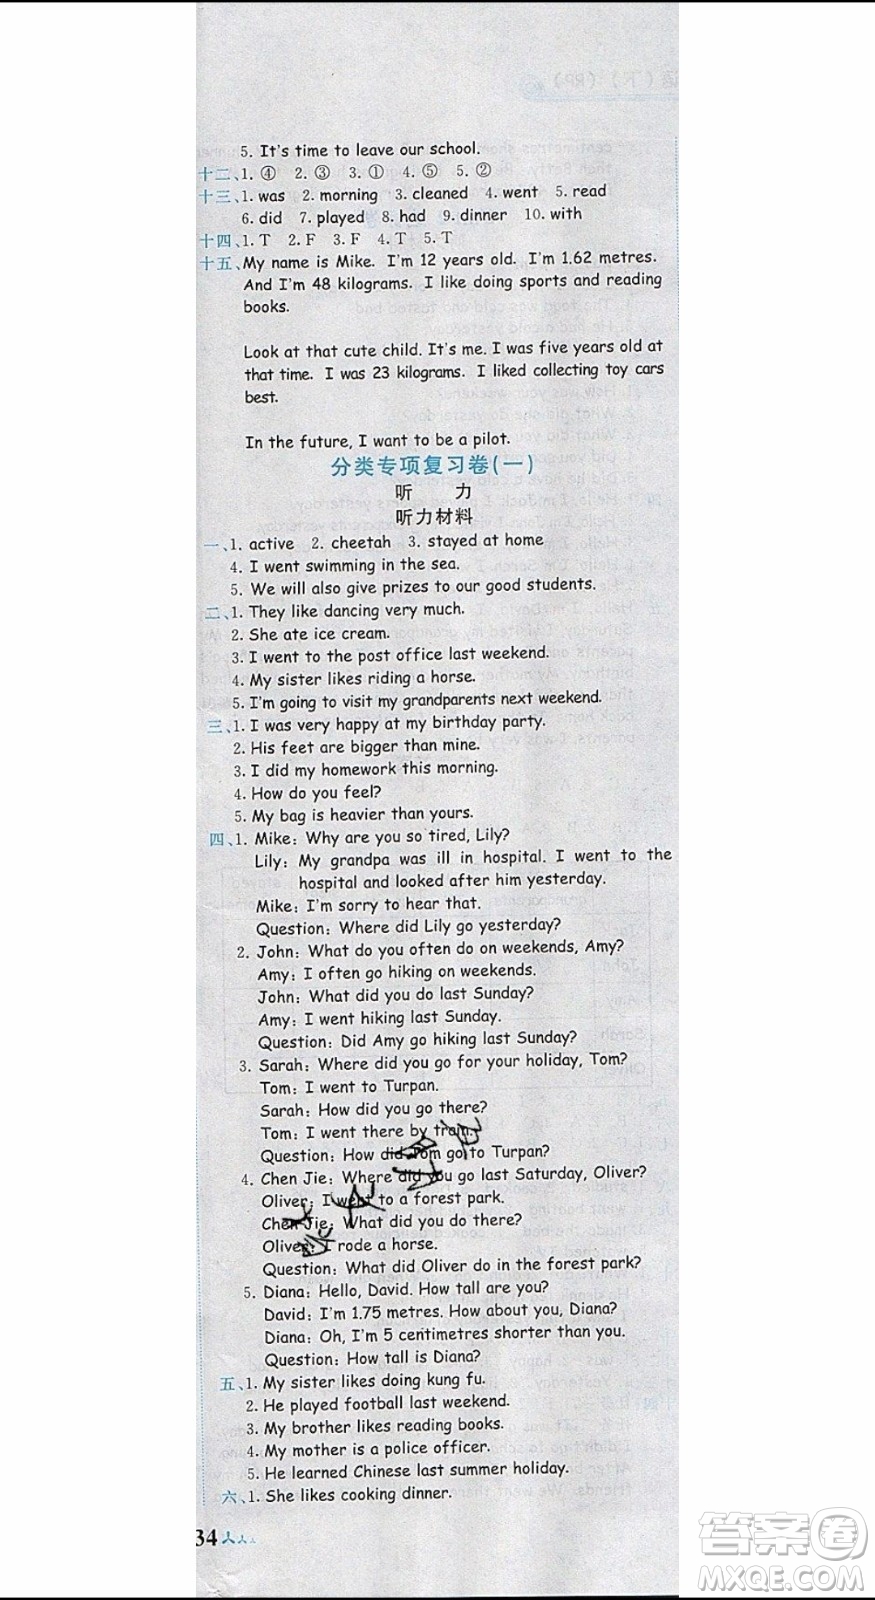 5. It's time to leave our school.
十二、1. ④ 2. ③ 3. ① 4. ⑤ 5. ②
十三、1. was 2. morning 3. cleaned 4. went 5. read
6. did 7. played 8. had 9. dinner 10. with
十四、1. T 2. F 3. F 4. T 5. T
十五、My name is Mike. I'm 12 years old. I'm 1.62 metres.
And I'm 48 kilograms. I like doing sports and reading
books.
Look at that cute child. It's me. I was five years old at
that time. I was 23 kilograms. I liked collecting toy cars
best.
In the future, I want to be a pilot.
分类专项复习卷(一)
听 力
听力材料
一、1. active 2. cheetah 3. stayed at home
4. I went swimming in the sea.
5. We will also give prizes to our good students.
二、1. They like dancing very much.
2. She ate ice cream.
3. I went to the post office last weekend.
4. My sister likes riding a horse.
5. I'm going to visit my grandparents next weekend.
三、1. I was very happy at my birthday party.
2. His feet are bigger than mine.
3. I did my homework this morning.
4. How do you feel?
5. My bag is heavier than yours.
四、1. Mike: Why are you so tired, Lily?
Lily: My grandpa was ill in hospital. I went to the
hospital and looked after him yesterday.
Mike: I'm sorry to hear that.
Question: Where did Lily go yesterday?
2. John: What do you often do on weekends, Amy?
Amy: I often go hiking on weekends.
John: What did you do last Sunday?
Amy: I went hiking last Sunday.
Question: Did Amy go hiking last Sunday?
3. Sarah: Where did you go for your holiday, Tom?
Tom: I went to Turpan.
Sarah: How did you go there?
Tom: I went there by train.
Question: How did Tom go to Turpan?
4. Chen Jie: Where did you go last Saturday, Oliver?
Oliver: I went to a forest park.
Chen Jie: What did you do there?
Oliver: I rode a horse.
Question: What did Oliver do in the forest park?
5. Diana: Hello, David. How tall are you?
David: I'm 1.75 metres. How about you, Diana?
Diana: Oh, I'm 5 centimetres shorter than you.
Question: How tall is Diana?
五、1. My sister likes doing kung fu.
2. He played football last weekend.
3. My brother likes reading books.
4. My mother is a police officer.
5. He learned Chinese last summer holiday.
六、1. She likes cooking dinner.
34
答案卷
MXQE.COM